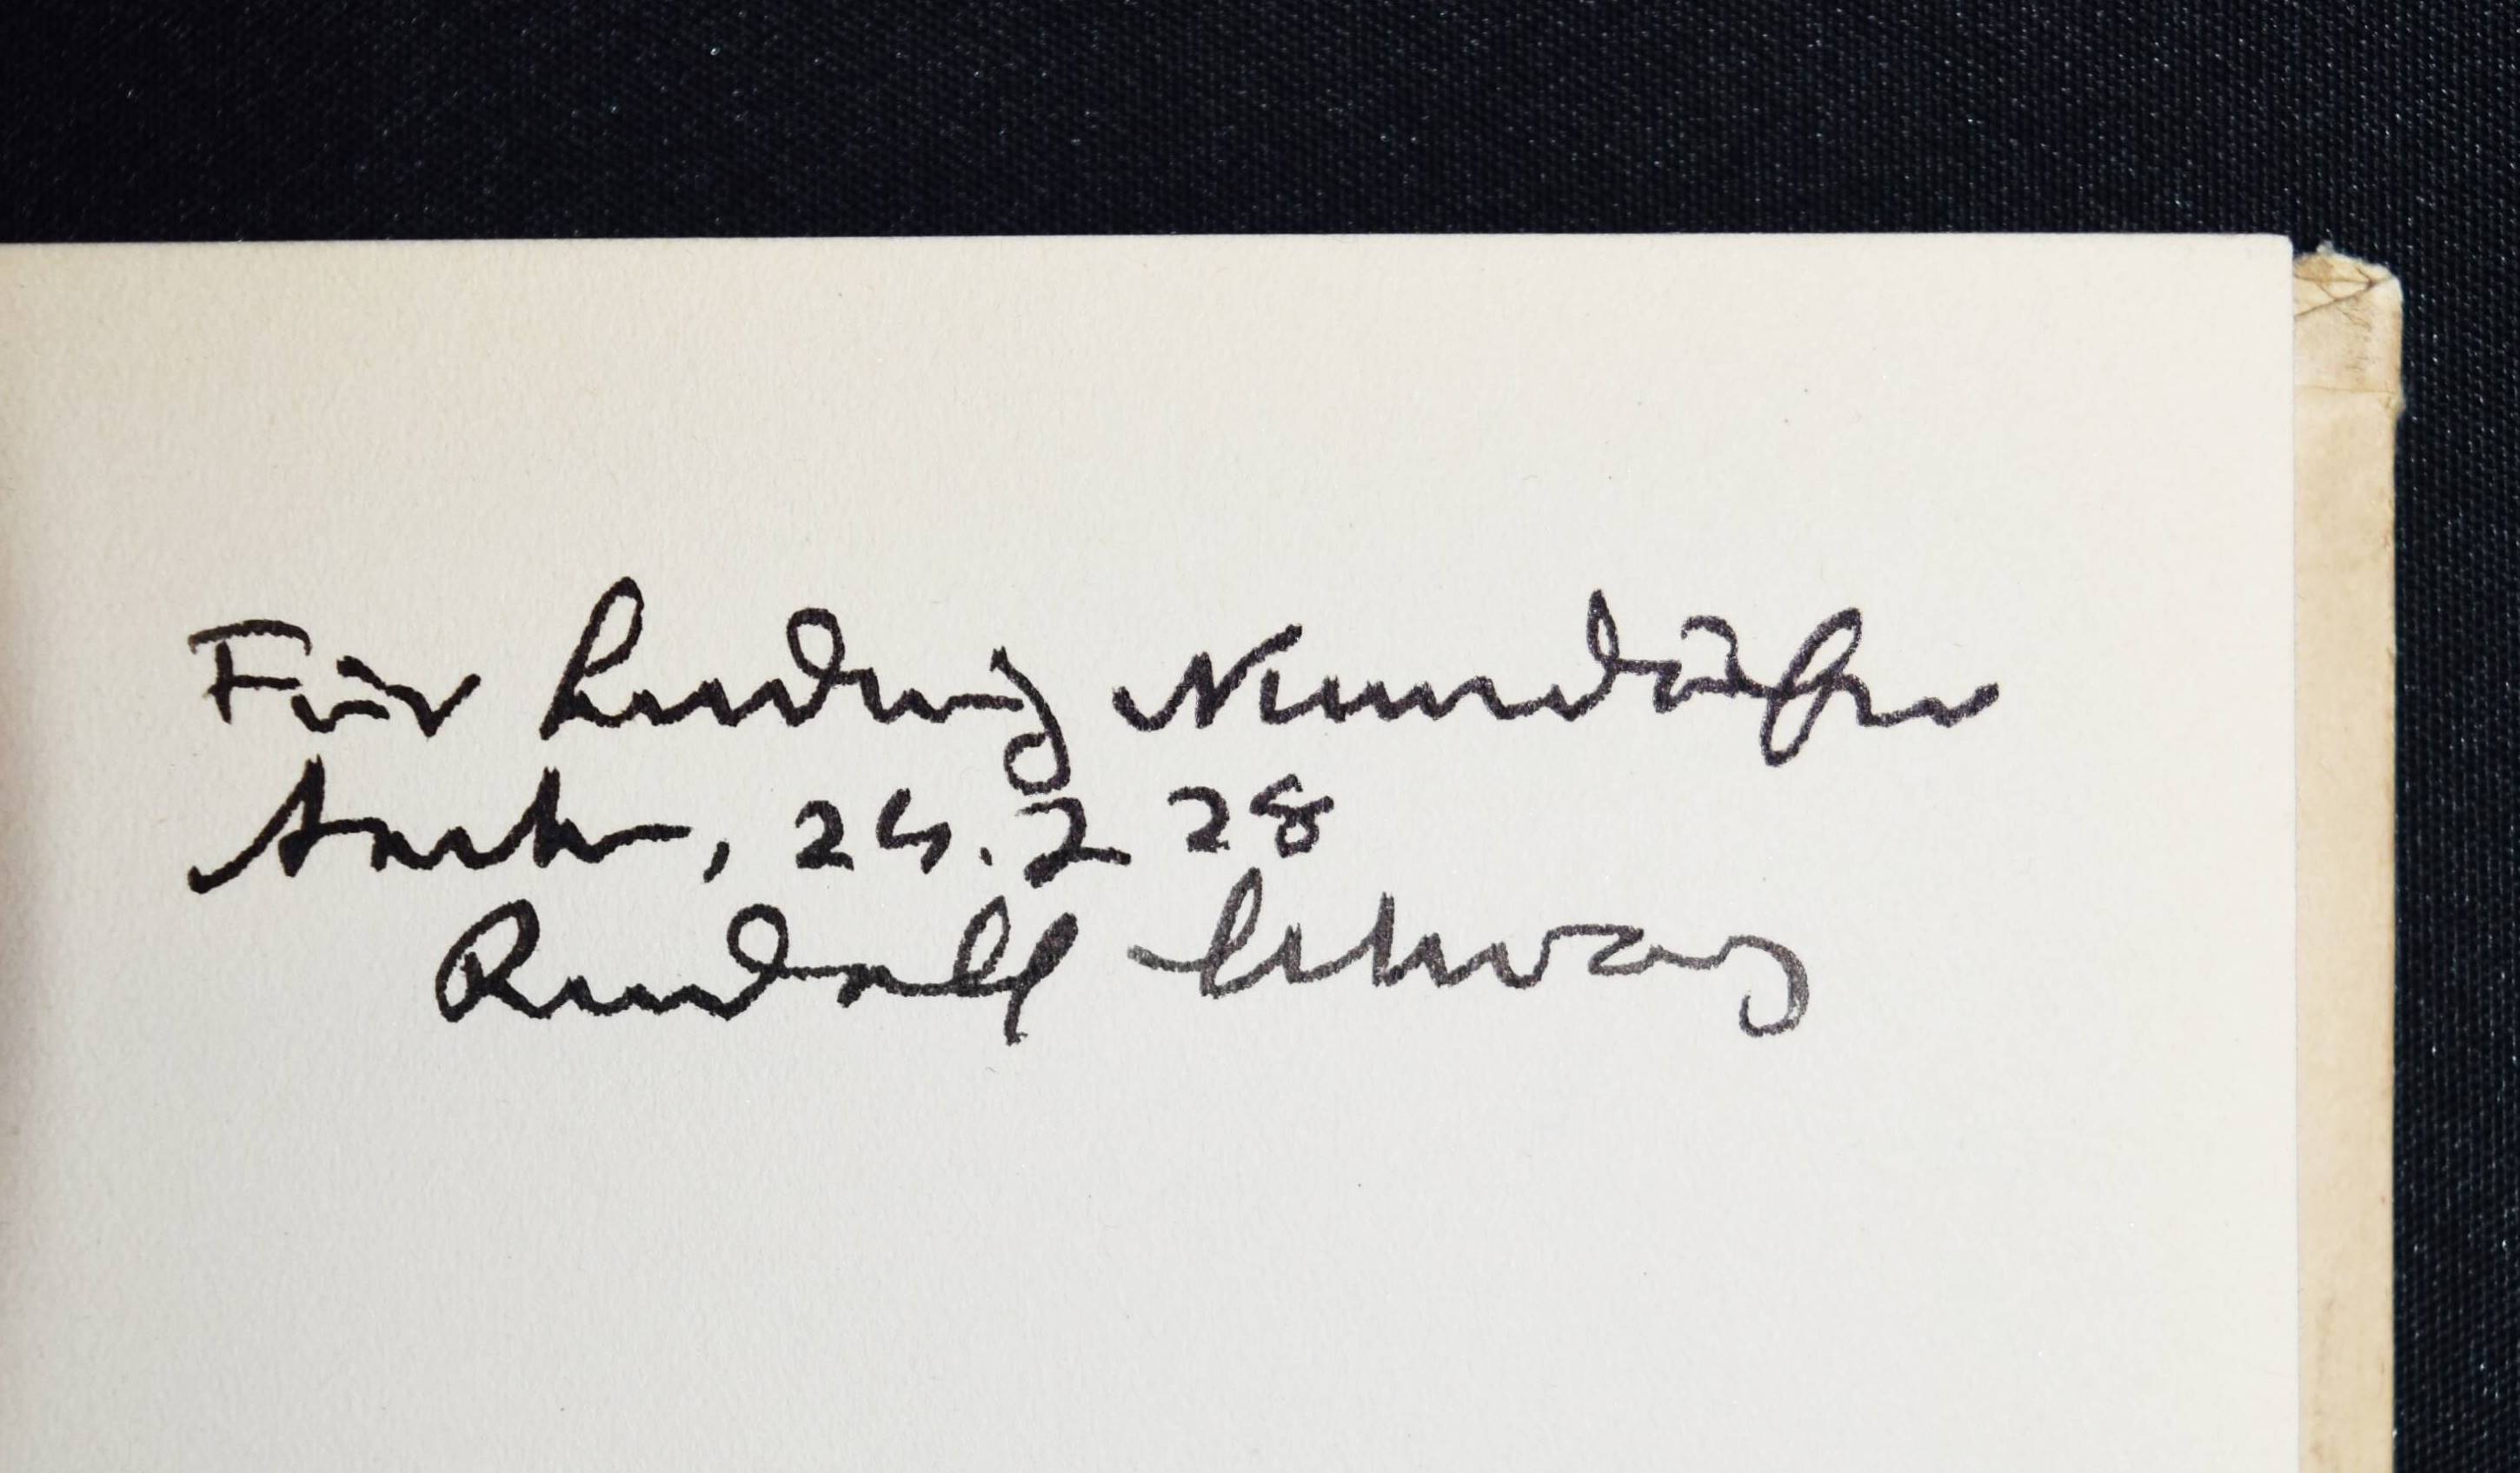 Für Ludwig Neundörfer
Aachen, 24.2 28
Rudolf Schwarz